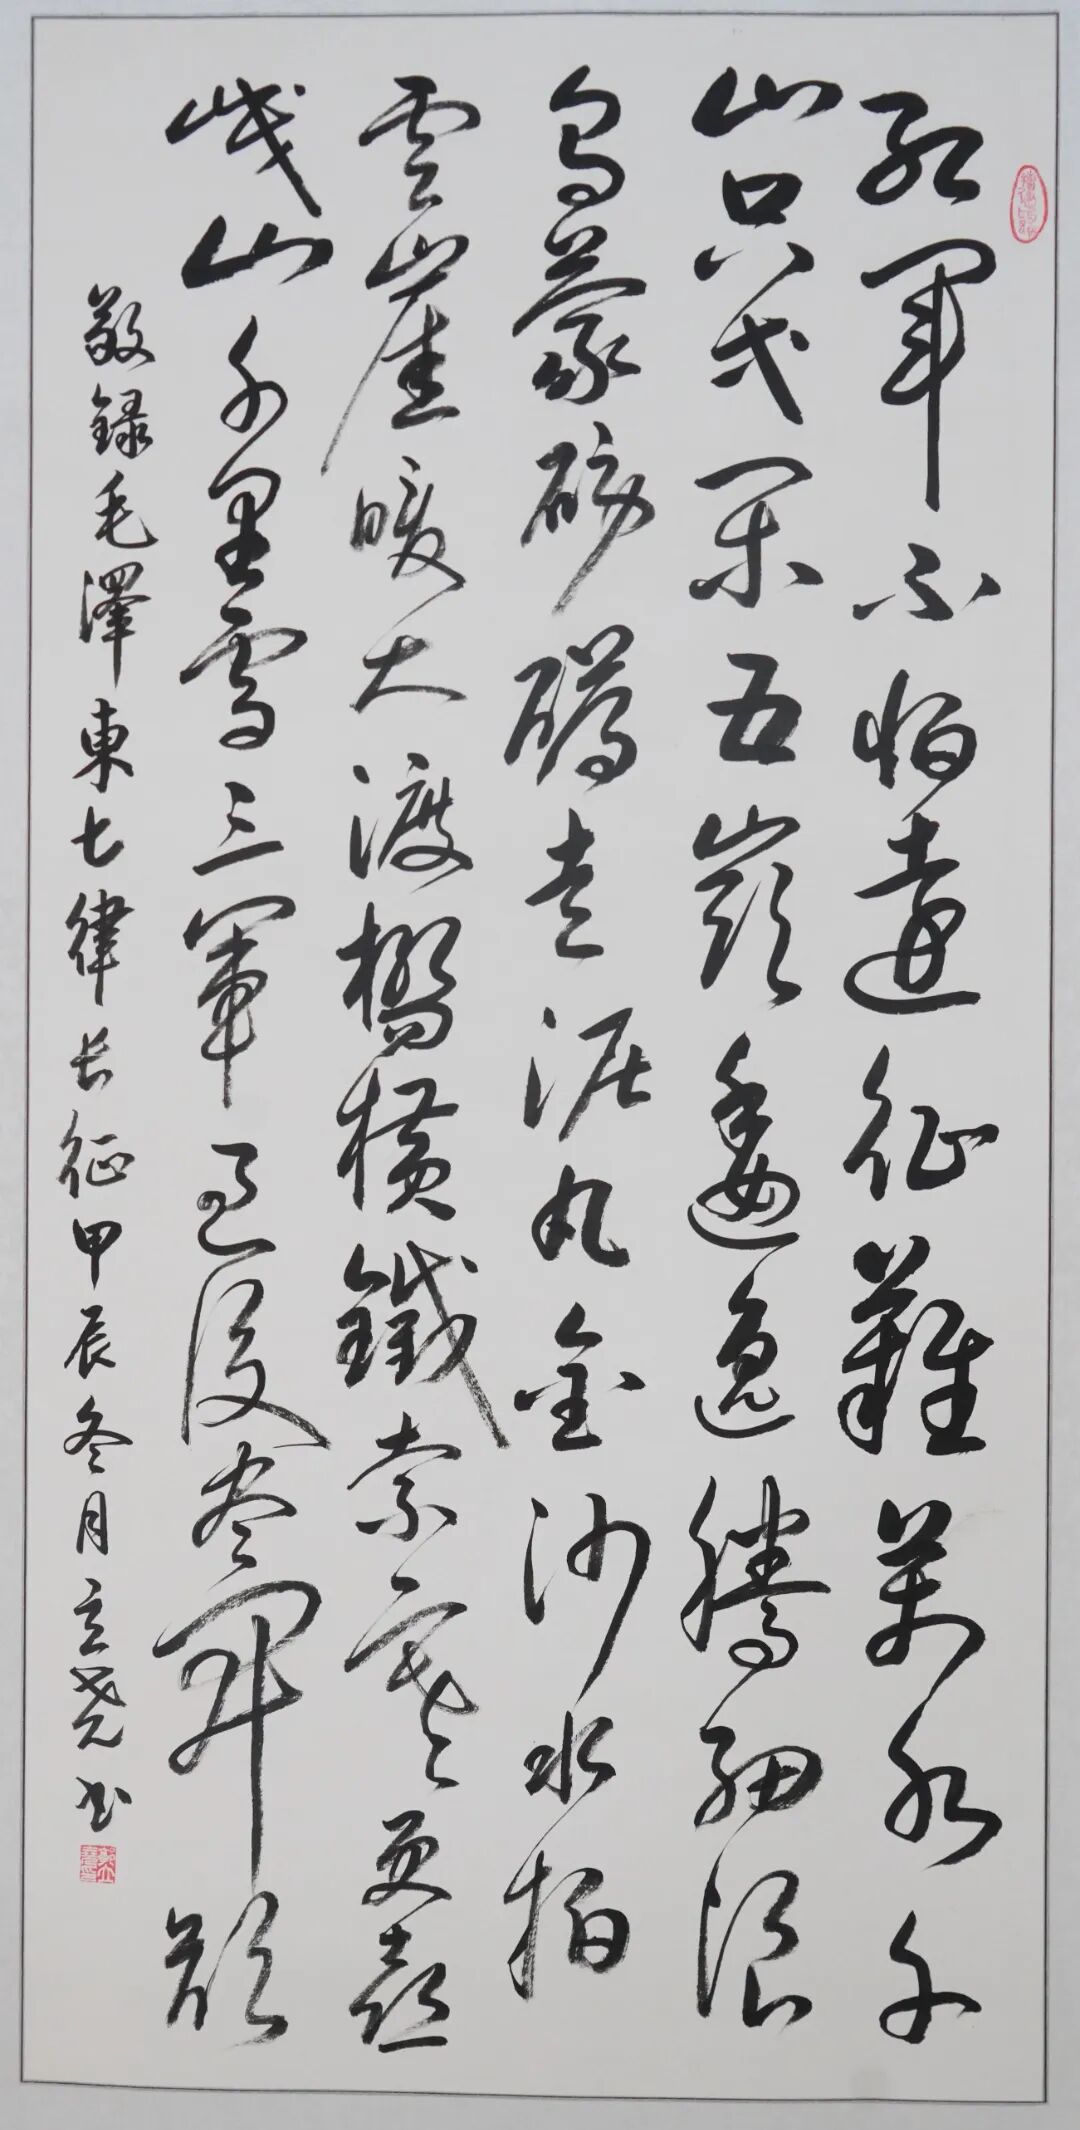 紅軍不怕遠征難萬水千
山只等閑五嶺逶迤騰細浪
烏蒙磅礴走泥丸金沙水拍
雲崖暖大渡橋橫鐵索寒更喜
岷山千里雪三軍過後盡開顏
敬錄毛澤東七律长征甲辰冬月立尧书